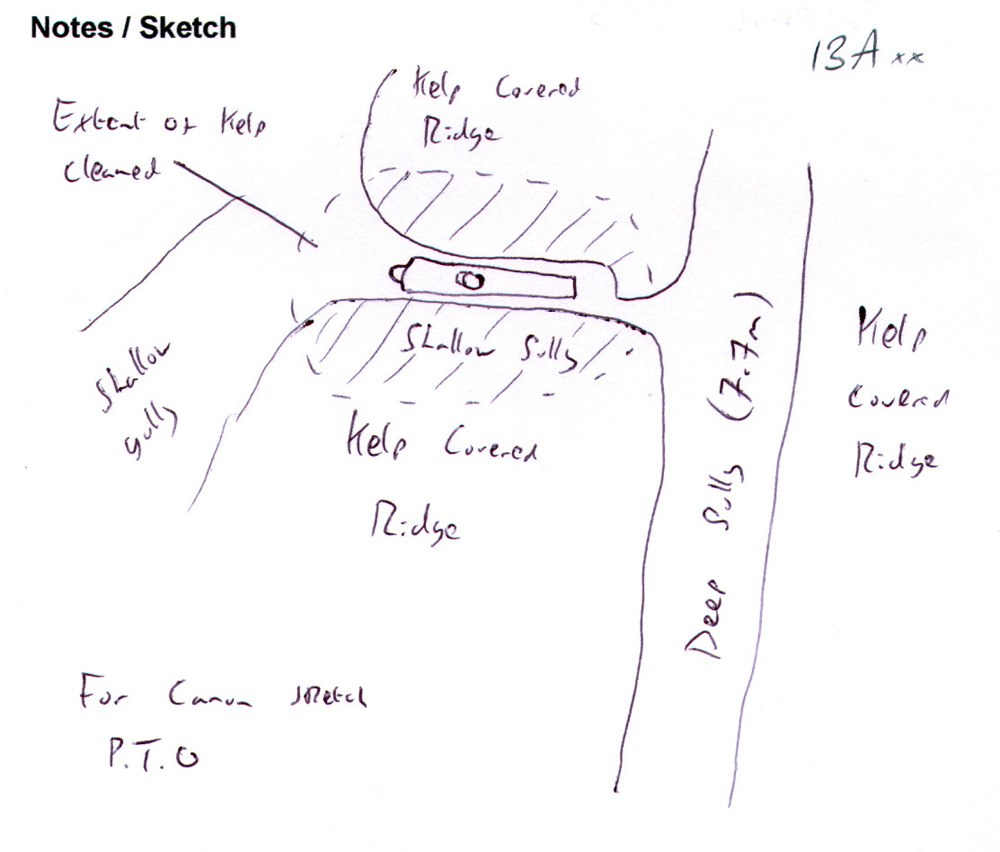 Notes / Sketch
13A xx
Kelp Covered
Ridge
Extent of Kelp
cleaned
Shallow Gully
Shallow
gully
Kelp Covered
Ridge
Deep Gully (7.7m)
Kelp
Covered
Ridge
For Canon sketch
P.T.O